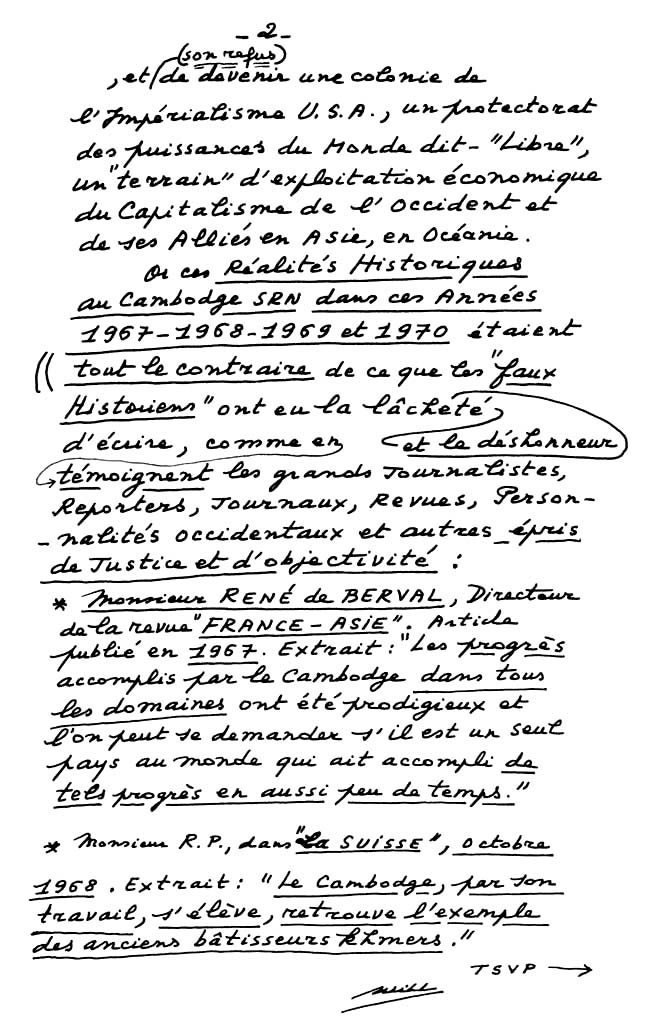 - 2 -
(son refus)
, et de devenir une colonie de
l'Impérialisme U.S.A., un protectorat
des puissances du Monde dit - "Libre",
un "terrain" d'exploitation économique
du Capitalisme de l'Occident et
de ses Alliés en Asie, en Océanie.
Or ces Réalités Historiques
au Cambodge SRN dans ces Années
1967-1968-1969 et 1970 étaient
(( tout le contraire de ce que les "faux
Historiens" ont eu la lâcheté
d'écrire, comme en et le déshonneur
témoignent les grands Journalistes,
Reporters, Journaux, Revues, Person-
-nalités occidentaux et autres épris
de Justice et d'objectivité :
* Monsieur RENÉ de BERVAL, Directeur
de la revue "FRANCE-ASIE". Article
publié en 1967. Extrait : "Les progrès
accomplis par le Cambodge dans tous
les domaines ont été prodigieux et
l'on peut se demander s'il est un seul
pays au monde qui ait accompli de
tels progrès en aussi peu de temps."
* Monsieur R.P., dans "La SUISSE", Octobre
1968. Extrait : "Le Cambodge, par son
travail, s'élève, retrouve l'exemple
des anciens bâtisseurs khmers."
TSVP →